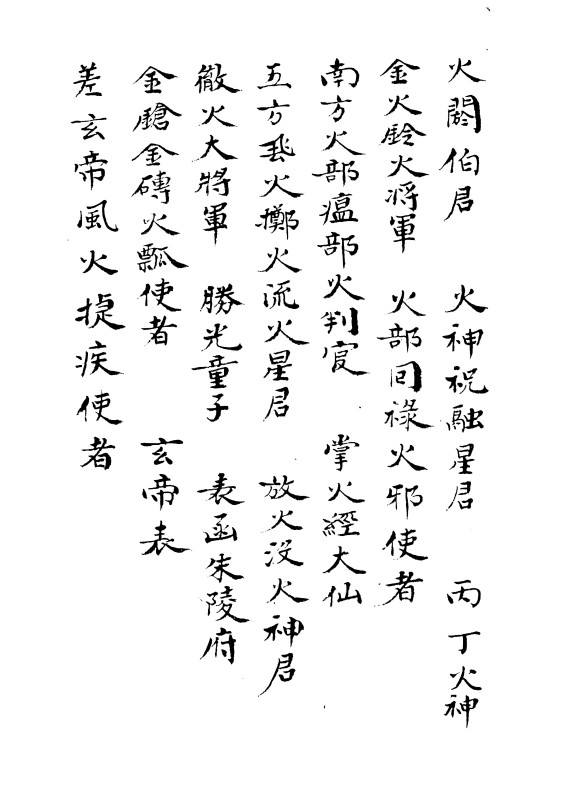 火閼伯君 火神祝融星君 丙丁火神
金火鈴火將軍 火部回祿火邪使者
南方火部瘟部火判官 掌火經大仙
五方飛火擲火流火星君 放火沒火神君
徹火大將軍 勝光童子 表函朱陵府
金鎗金磚火瓢使者 玄帝表
差玄帝風火捷疾使者